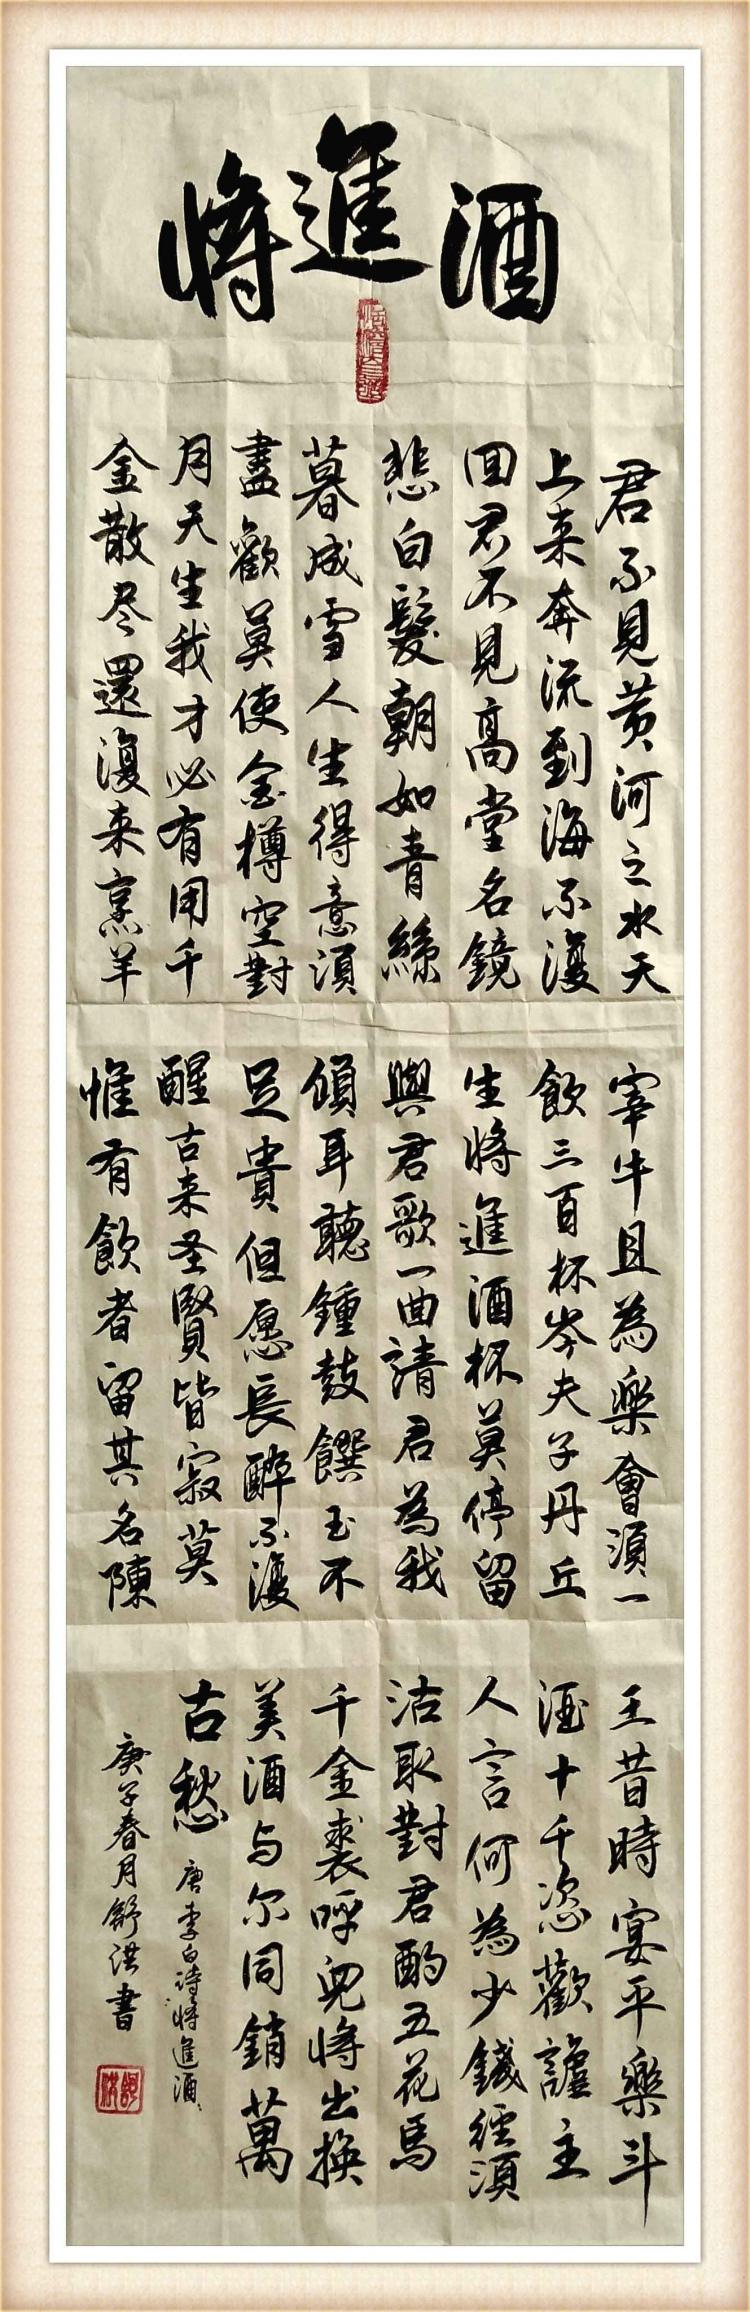 將進酒
君不見黄河之水天
上来奔流到海不復
回君不見高堂名鏡
悲白髮朝如青絲
暮成雪人生得意須
盡歡莫使金樽空對
月天生我才必有用千
金散尽還復来烹羊
宰牛且為樂會須一
飲三百杯岑夫子丹丘
生將進酒杯莫停留
與君歌一曲請君為我
傾耳聽鍾鼓饌玉不
足貴但愿長醉不復
醒古来圣賢皆寂莫
惟有飲者留其名陳
王昔時宴平樂斗
酒十千恣歡謔主
人言何為少錢經須
沽取對君酌五花馬
千金裘呼兒將出換
美酒与尔同銷萬
古愁
唐李白詩將進酒
庚子春月舒洪書